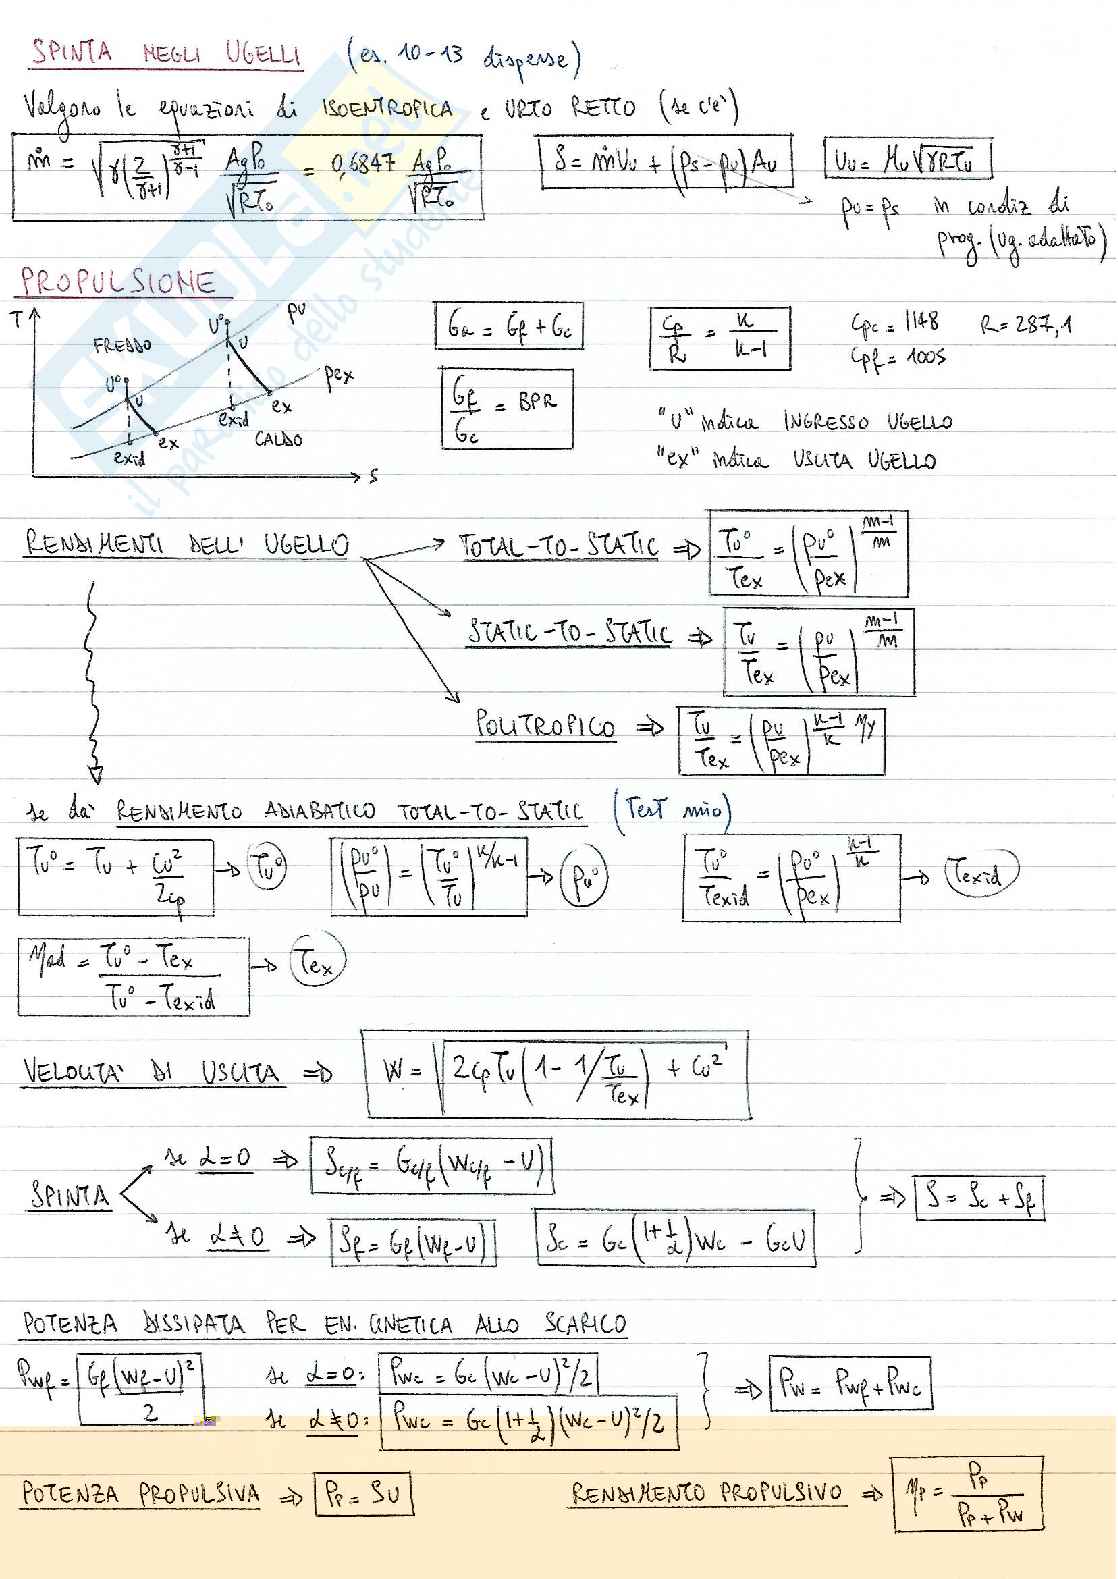 SPINTA NEGLI UGELLI (es. 10-13 dispense)
Valgono le equazioni di ISOENTROPICA e URTO RETTO (se c'è)
ṁ = √(γ(2/(γ+1))^((γ+1)/(γ-1))) AgP₀/√(RT₀) = 0,6847 AgP₀/√(RT₀)
S = ṁVu + (ps-pu)Au
Vu = Mu√(γRTu)
pu = ps in condiz di
prog. (ug. adattato)
PROPULSIONE
T
FREDDO
u°
u
pu
pex
u°
u
exid
ex
exid
ex
CALDO
s
Ga = Gf + Gc
cp/R = k/(k-1)
cpc = 1148 R = 287,1
cpf = 1005
Gf/Gc = BPR
"u" indica INGRESSO UGELLO
"ex" indica USCITA UGELLO
RENDIMENTI DELL' UGELLO
TOTAL-TO-STATIC ⇒ Tu°/Tex = (pu°/pex)^((m-1)/m)
STATIC-TO-STATIC ⇒ Tu/Tex = (pu/pex)^((m-1)/m)
POLITROPICO ⇒ Tu/Tex = (pu/pex)^((k-1)/k ηy)
se dà RENDIMENTO ADIABATICO TOTAL-TO-STATIC (Test mio)
Tu° = Tu + cu²/2cp → Tu°
(pu°/pu) = (Tu°/Tu)^(k/k-1) → pu°
Tu°/Texid = (pu°/pex)^((k-1)/k) → Texid
ηad = (Tu° - Tex)/(Tu° - Texid) → Tex
VELOCITA' DI USCITA ⇒ W = √(2cpTu(1 - 1/(Tu/Tex)) + cu²)
SPINTA
se α=0 ⇒ Sc/f = Gc/f (Wc/f - U)
se α≠0 ⇒ Sf = Gf(Wf-U) Sc = Gc(1+1/α)Wc - GcU
⇒ S = Sc + Sf
POTENZA DISSIPATA PER EN. CINETICA ALLO SCARICO
Pwf = Gf(Wf-U)²/2
se α=0: Pwc = Gc(Wc-U)²/2
se α≠0: Pwc = Gc(1+1/α)(Wc-U)²/2
⇒ Pw = Pwf + Pwc
POTENZA PROPULSIVA ⇒ Pp = SU
RENDIMENTO PROPULSIVO ⇒ ηp = Pp/(Pp + Pw)